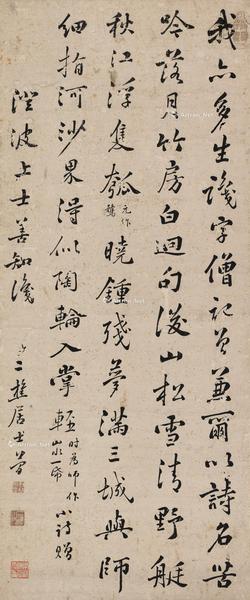 我亦多生識字僧記曾兼爾以詩名苦
吟落月竹房白迴句後山松雪清野艇
秋江浮隻瓠元作曉鐘殘夢滿三城與師
細指河沙果得似陶輪入掌輕時為師作山水一幀小詩贈
澄波上士善知識二樵居士簡